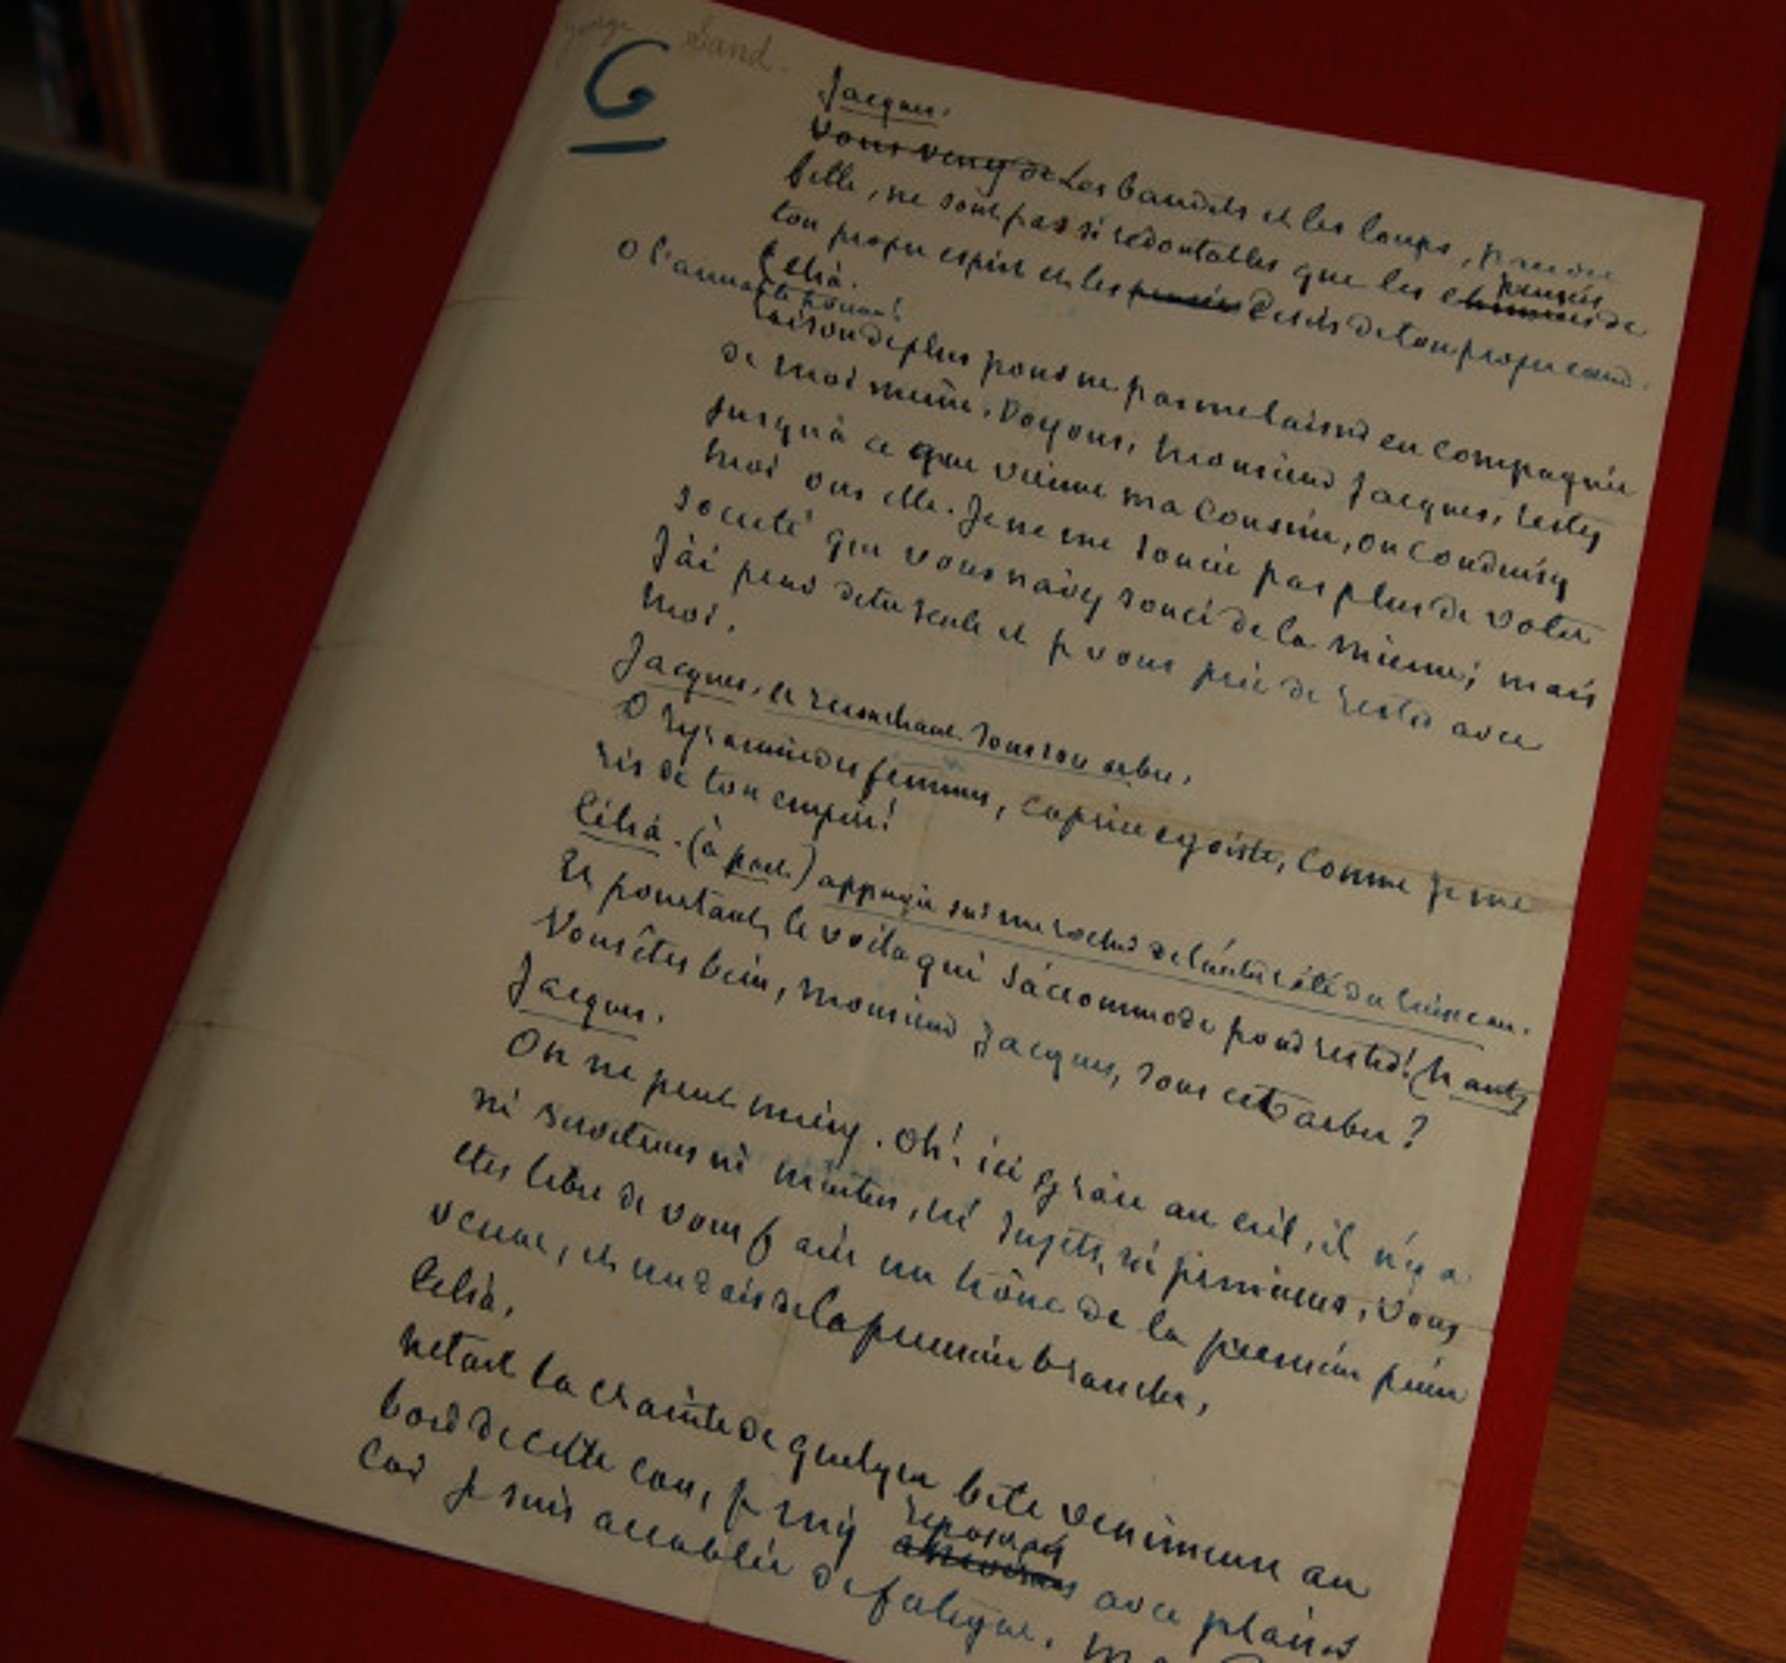 George Sand.
G
Jacques.
Vous venez de Les bandits et les loups, prude
belle, ne sont pas si redoutables que les chimères pensées de
ton propre esprit et les pensées desirs de ton propre cœur.
Celia.
O l'aimable homme!
raison de plus pour ne pas me laisser en compagnie
de moi même. Voyons, monsieur Jacques, restez
jusqu'à ce que vienne ma cousine, ou conduisez
moi vers elle. Je ne me soucie pas plus de votre
société que vous n'avez souci de la mienne; mais
J'ai peur d'etre seule et je vous prie de rester avec
moi.
Jacques, se recouchant sous son arbre.
O tyrannie des femmes, caprice egoiste, comme je me
ris de ton empire!
Célia. (à part) appuyée sur un rocher de l'autre côté du ruisseau.
Et pourtant, le voila qui s'accommode pour rester! (haut)
Vous êtes bien, monsieur Jacques, sous cet arbre?
Jacques.
On ne peut mieux. Oh! ici grâce au ciel, il n'y a
ni serviteurs ni maitres, ni sujets, ni princesses, vous
etes libre de vous faire un trône de la premiere pierre
venue, et un dais de la premiere branche.
Celia.
N'etait la crainte de quelque bete venimeuse au
bord de cette eau, je m'y reposerais avec plaisir
car je suis accablée de fatigue.